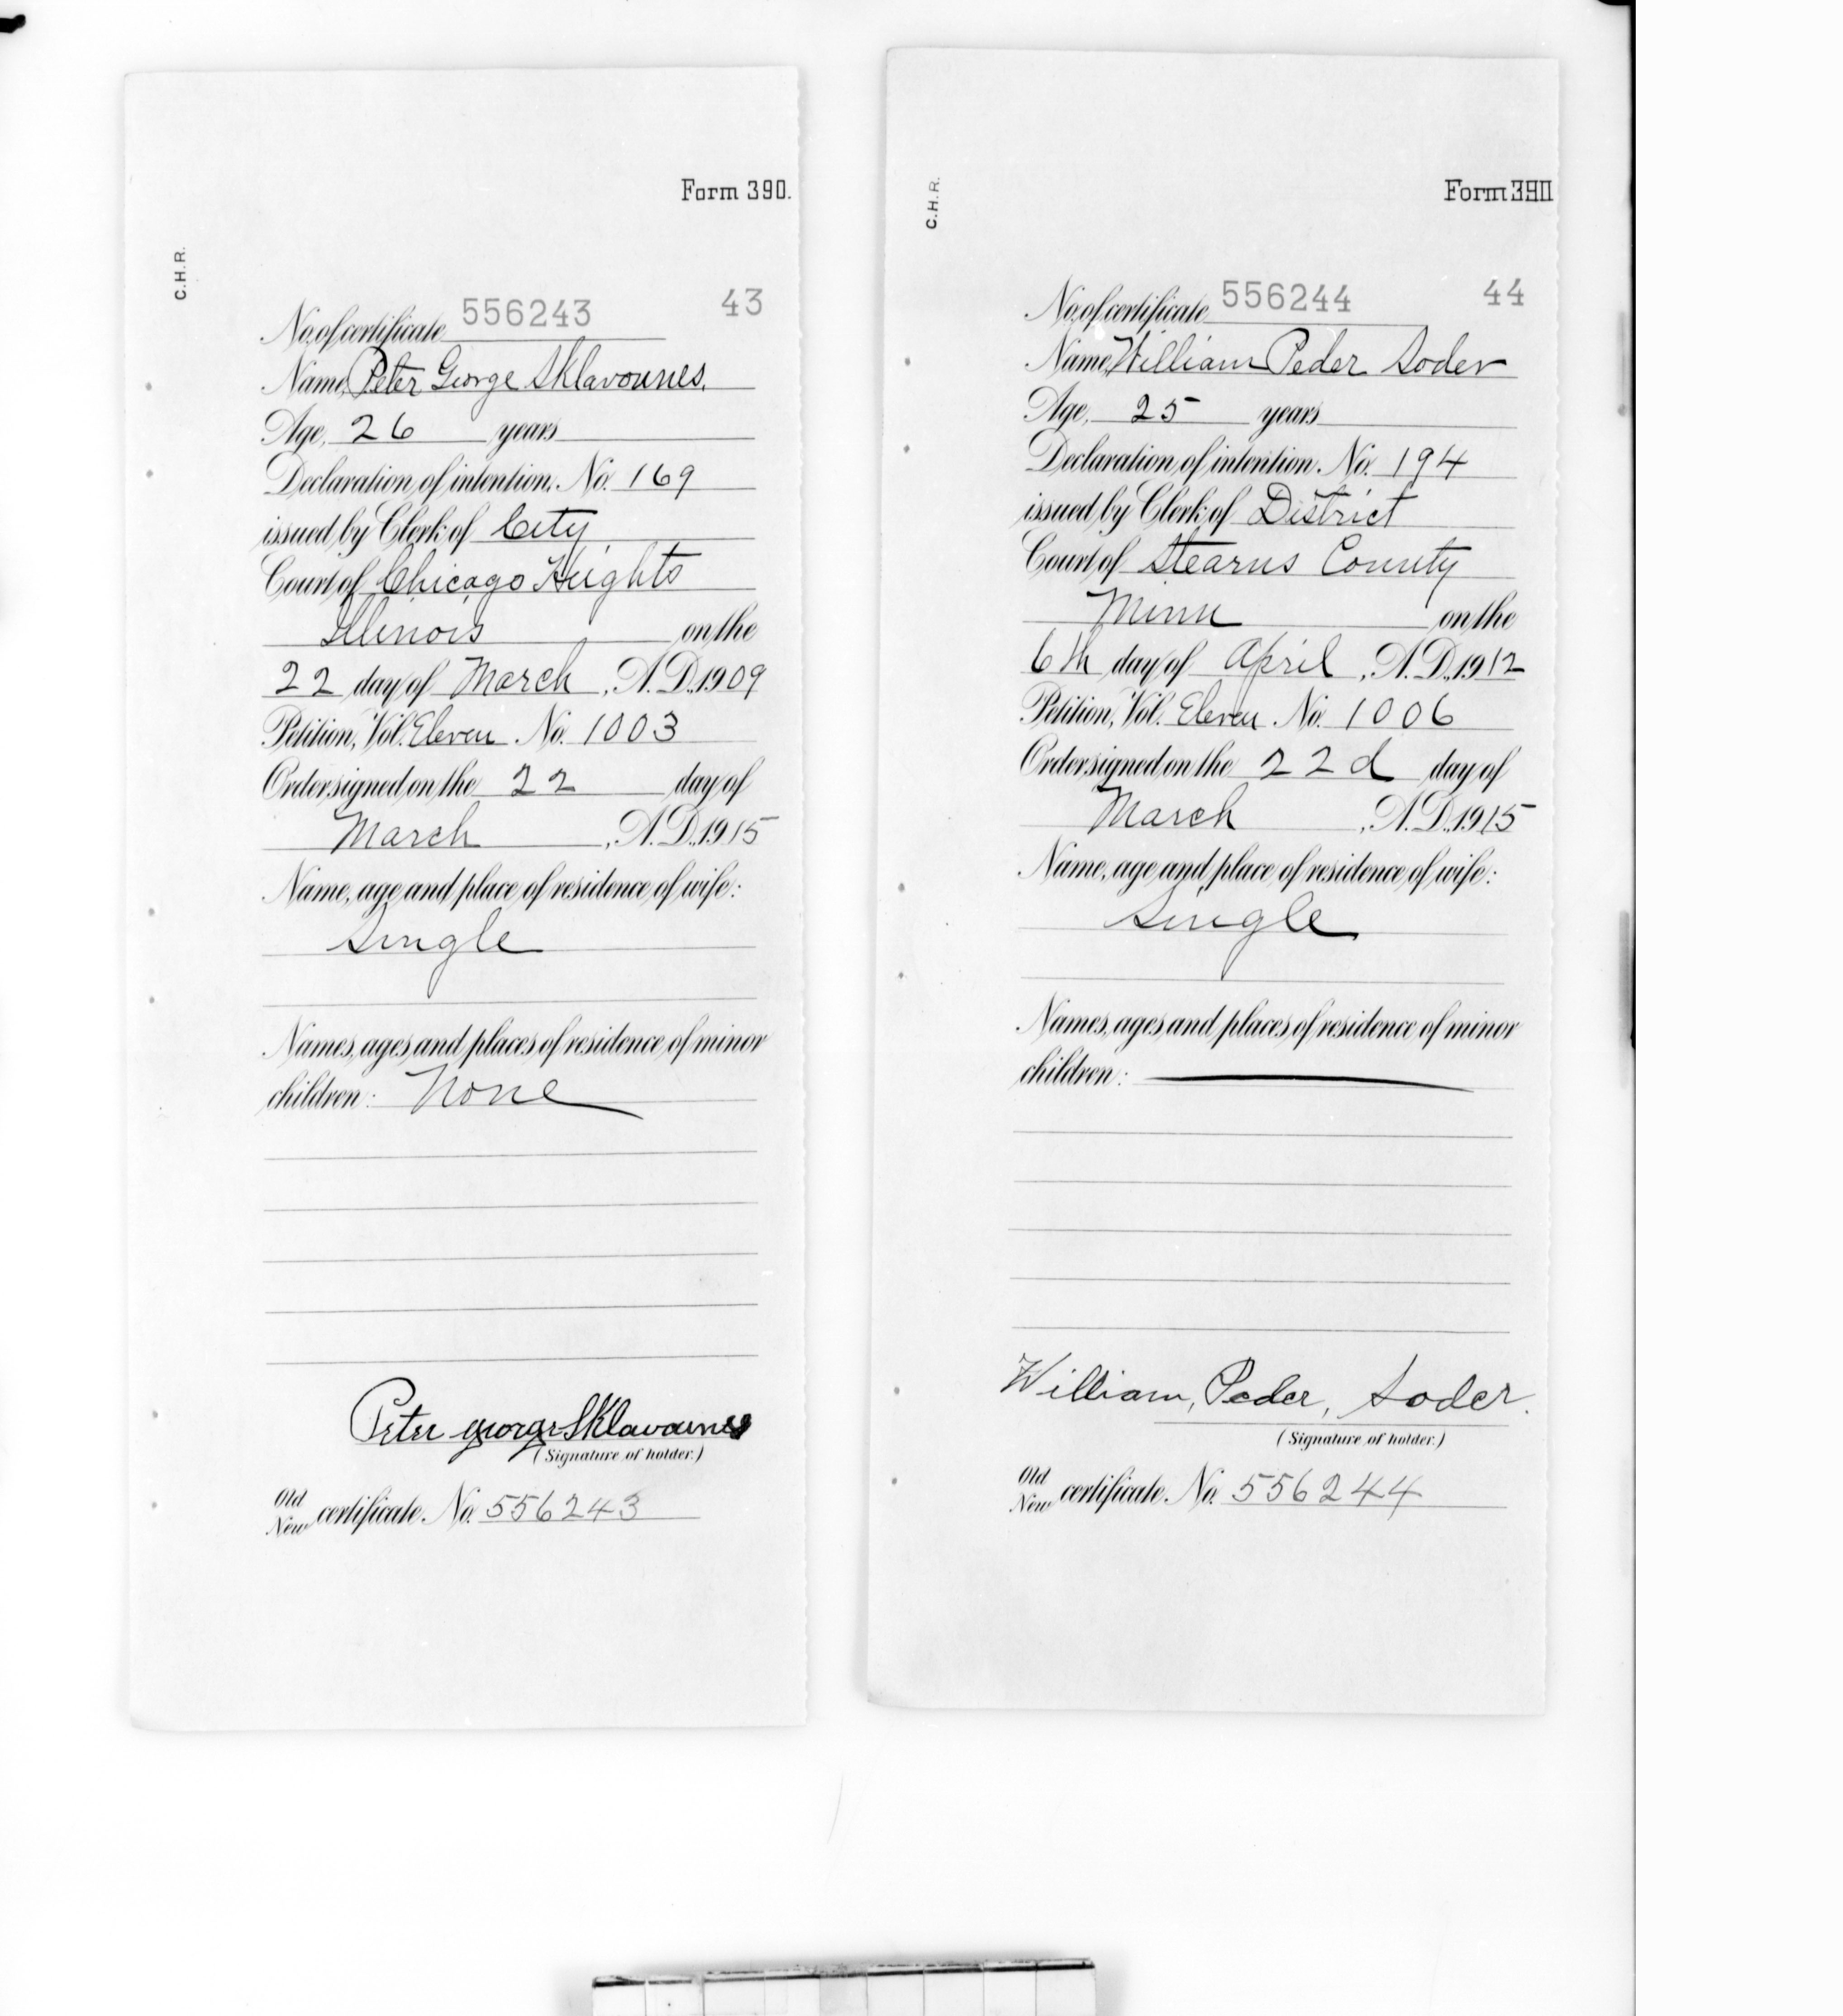 Form 390.
C.H.R.
No. of certificate 556243 43
Name, Peter George Sklavounes.
Age, 26 years
Declaration of intention, No. 169
issued by Clerk of City
Court of Chicago Heights
Illinois on the
22 day of March, A.D., 1909
Petition, Vol. Eleven No. 1003
Order signed on the 22 day of
March, A.D., 1915
Name, age and place of residence of wife:
Single
Names, ages and places of residence of minor
children: None
Peter george Sklavounes
(Signature of holder.)
Old
New certificate No. 556243
Form 390
C.H.R.
No. of certificate 556244 44
Name, William Peder Soder
Age, 25 years
Declaration of intention, No. 194
issued by Clerk of District
Court of Stearns County
Minn on the
6th day of April, A.D., 1912
Petition, Vol. Eleven No. 1006
Order signed on the 22d day of
March, A.D., 1915
Name, age and place of residence of wife:
Single
Names, ages and places of residence of minor
children:
William, Peder, Soder.
(Signature of holder.)
Old
New certificate No. 556244